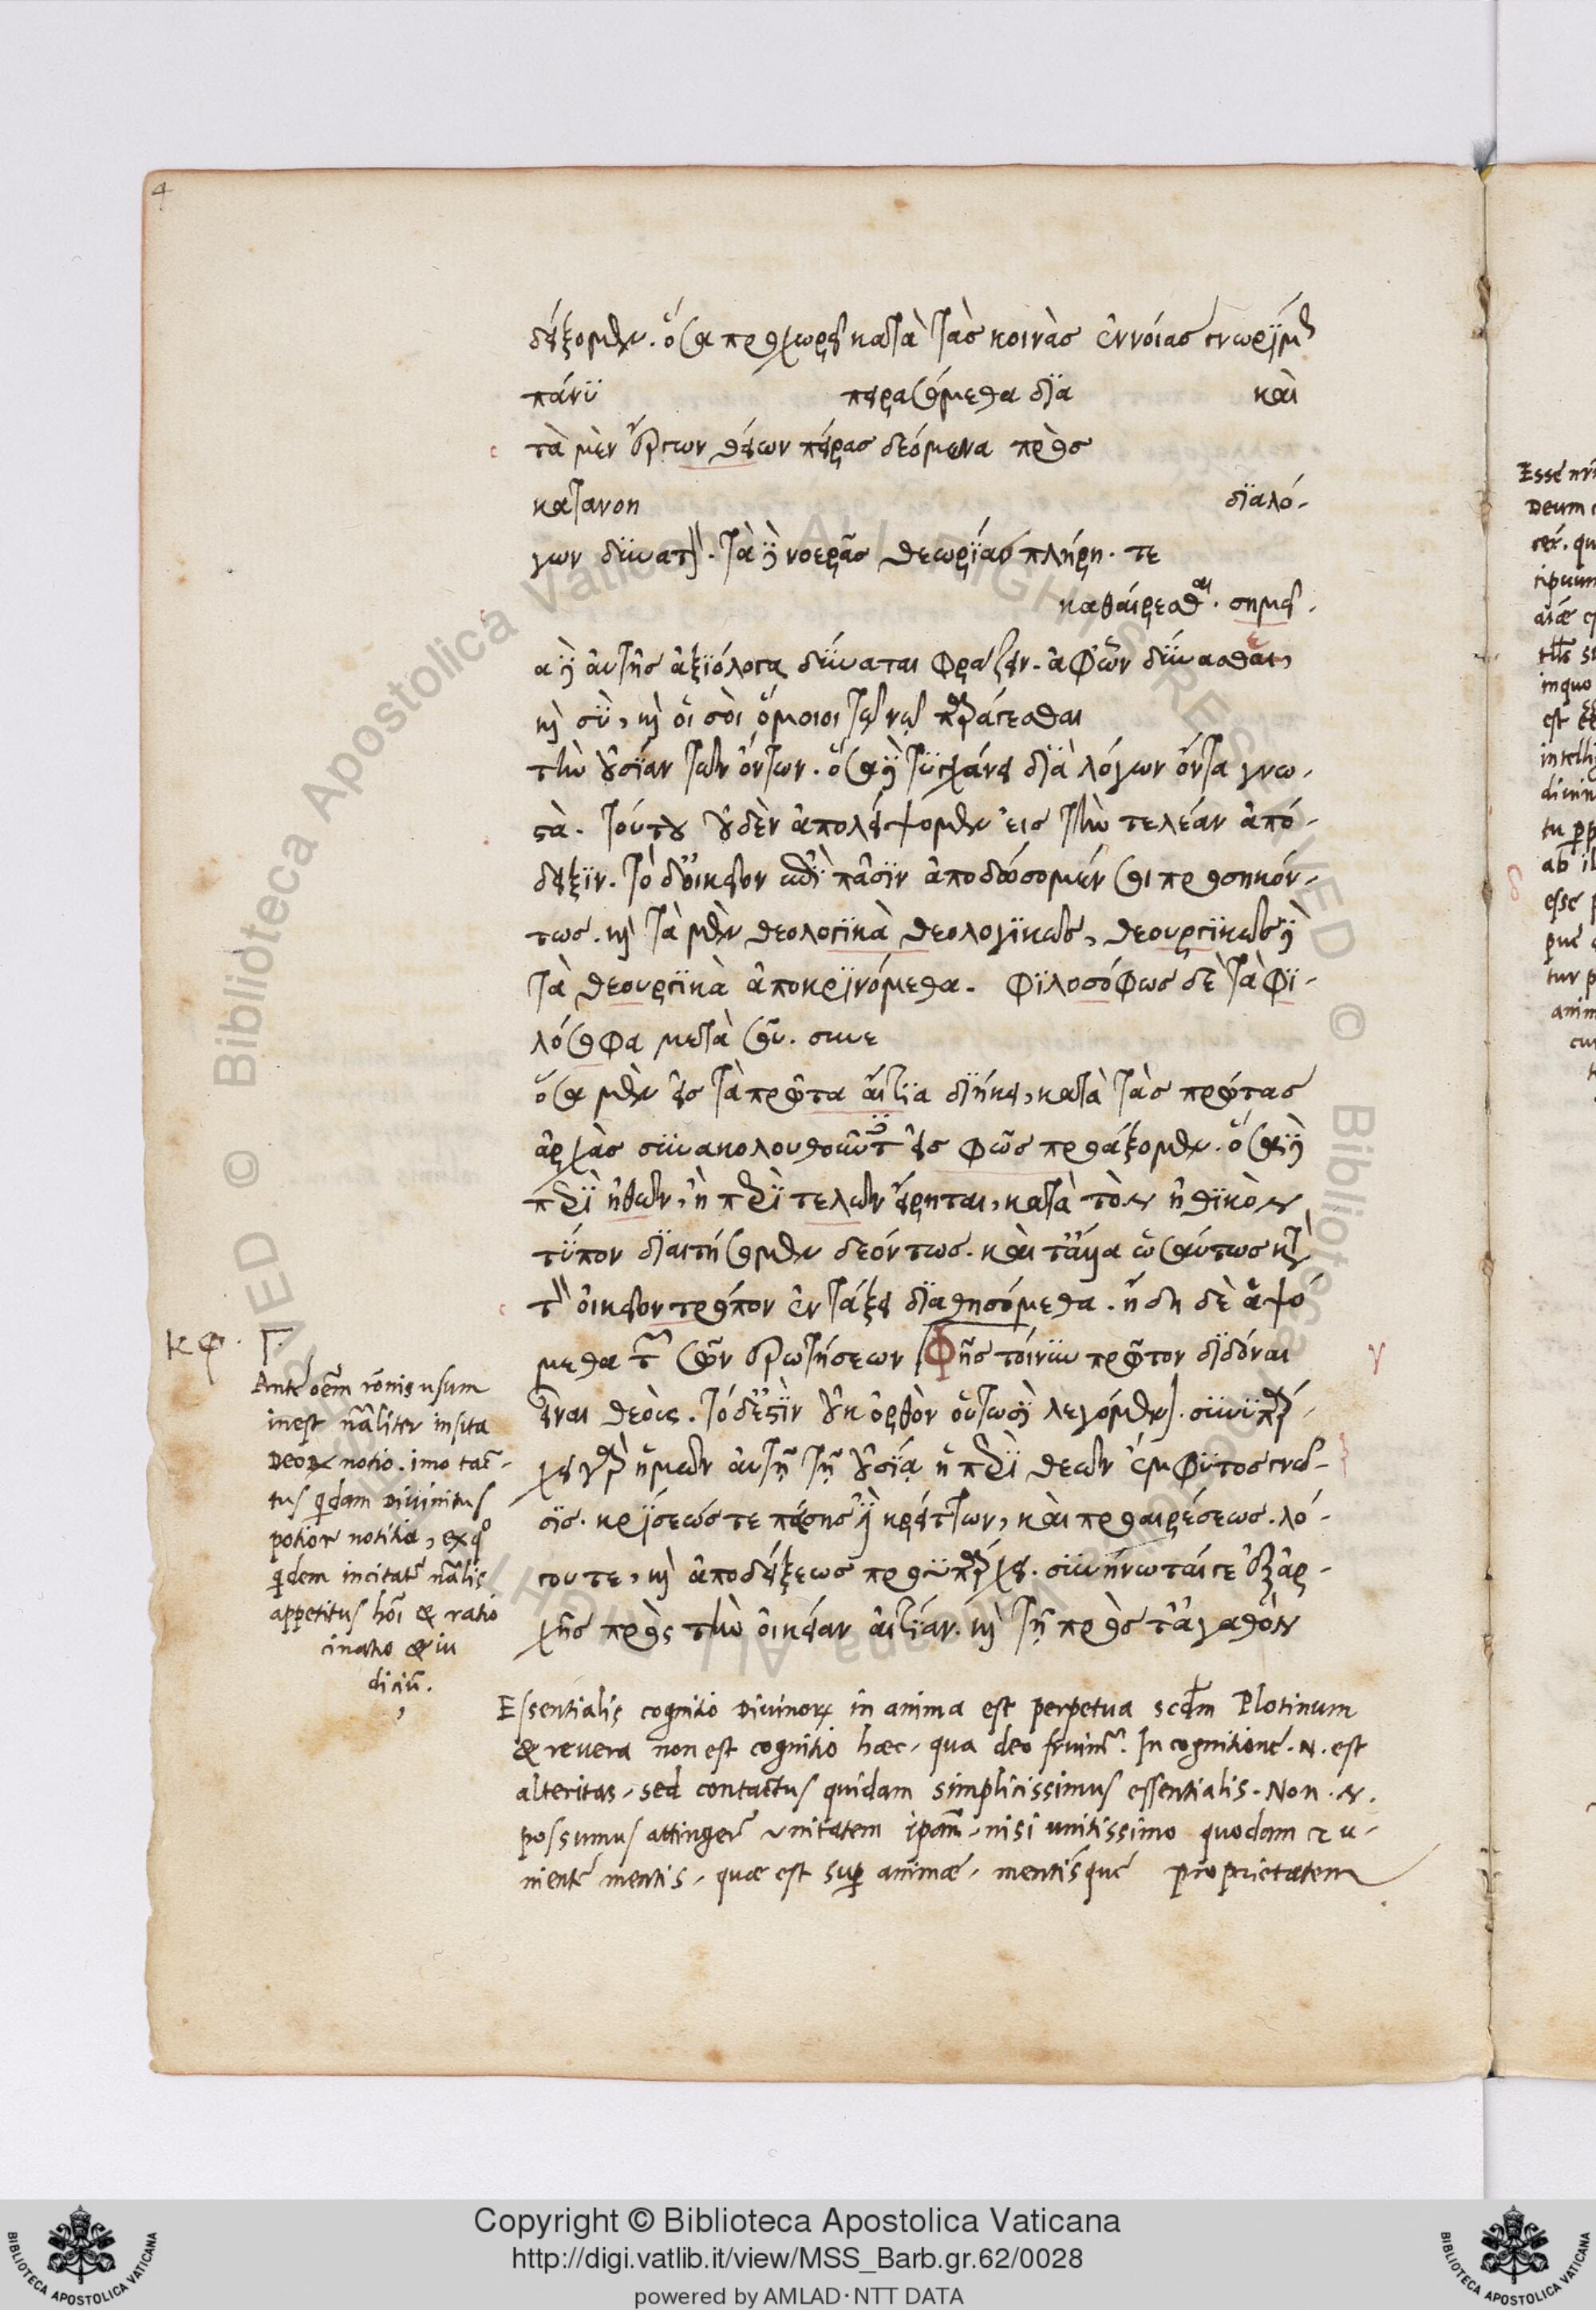 4
δείξομεν. ὅσα προχωρεῖ κατὰ τὰς κοινὰς ἐννοίας γνωρίμ
πάνυ πειρασόμεθα δία καὶ
τὰ μὲν ἔργων θείων πείρας δεόμενα πρὸς
κατανοη διαλό-
γων δυνατ. τὰ δὲ νοερᾶς θεωρίας πλήρη. τε
καθαίρεσθαι. σημεῖ-
α δὲ αὐτῆς ἀξιόλογα δύναται φράζειν. ἀφ' ὧν δύνασθαι,
καὶ σὺ, καὶ οἱ σοὶ ὅμοιοι τῷ νῷ παράγεσθαι
τὴν οὐσίαν τῶν ὄντων. ὅσα δὲ τυγχάνει διὰ λόγων ὄντα γνω-
στὰ. τούτου οὐδὲν ἀπολείψομεν εἰς τὴν τελέαν ἀπό-
δειξιν. τὸ δ' οἰκεῖον ἐπὶ πᾶσιν ἀποδώσομέν σοι προσηκόν-
τως. καὶ τὰ μὲν θεολογικὰ θεολογικῶς, θεουργικῶς δὲ
τὰ θεουργικὰ ἀποκρινόμεθα. φιλοσόφως δὲ τὰ φι-
λόσοφα μετὰ σοῦ. συνε
ὅσα μὲν εἰς τὰ πρῶτα αἴτια διήκει, κατὰ τὰς πρώτας
ἀρχὰς συνακολουθοῦντ εἰς φῶς προάξομεν. ὅσα δὲ
περὶ ἠθῶν, ἢ περὶ τελῶν εἴρηται, κατὰ τὸν ἠθικὸν
τύπον διαιτήσομεν δεόντως. καὶ τἆλλα ὡσαύτως κατὰ
τὸν οἰκεῖον τρόπον ἐν τάξει διαθησόμεθα. ἤδη δὲ ἁψό
μεθα τῶν σῶν ἐρωτήσεων Φῂς τοίνυν πρῶτον διδόναι
εἶναι θεοὺς. τὸ δ' ἐστὶν οὐκ ὀρθὸν οὑτωσὶ λεγόμενον. συνυπάρ-
χει γὰρ ἡμῶν αὐτῇ τῇ οὐσίᾳ ἡ περὶ θεῶν ἔμφυτος γνῶ-
σις. κρίσεώς τε πάσης ἐστὶ κρείττων, καὶ προαιρέσεως. λό-
γου τε, καὶ ἀποδείξεως προϋπάρχει. συνήνωταί τε ἐξ ἀρ-
χῆς πρὸς τὴν οἰκείαν αἰτίαν. καὶ τῇ πρὸς τἀγαθὸν
κφ. Γ.
Ante oēm rōnis usum
inest nāliter insita
Deoꝝ notio. imo tac-
tus qdam Divinitus
potior notitia, ex q°
qdem incitat nālis
appetitus hōi & ratio
cinatio & iu
diciū.
γ
Essentialis cognitio Divinoꝝ in anima est perpetua scdm Plotinum
& revera non est cognitio hæc, qua deo fruimr. In cognitione .N. est
alteritas, sed contactus quidam simplicissimus essentialis. Non .N.
possumus attingere unitatem ipam, nisi unitissimo quodam
mentis, quæ est sup animæ, mentisque proprietatem
Esse
Deum
cipuum
in quo
est
divin
ab il
esse
tur p
anim
Copyright © Biblioteca Apostolica Vaticana
http://digi.vatlib.it/view/MSS_Barb.gr.62/0028
powered by AMLAD·NTT DATA
BIBLIOTECA APOSTOLICA VATICANA
BIBLIOTECA APOSTOLICA VATICANA